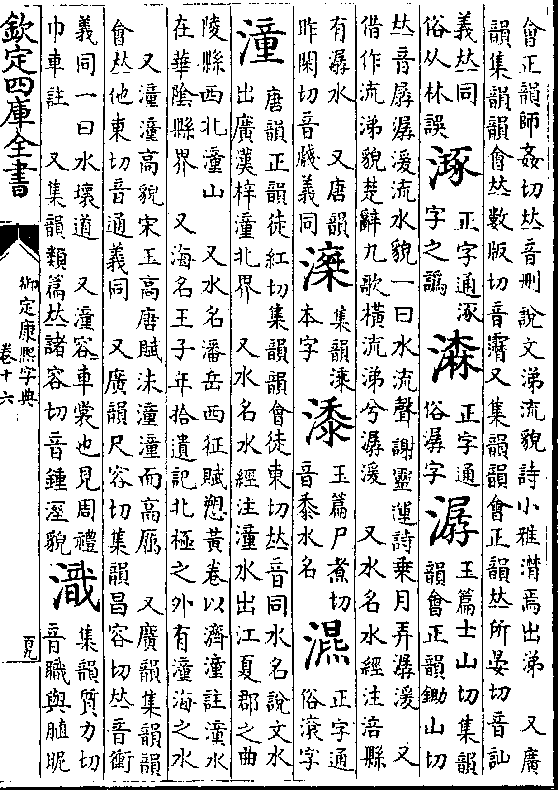 會正韻師姦切𠀤音刪說文涕流貌詩小雅潸焉出涕　又廣
韻集韻韻會𠀤數版切音㵎又集韻韻會正韻𠀤所晏切音訕
義𠀤同
俗从林誤
正字通涿
字之譌
正字通
俗潺字
潺
玉篇士山切集韻
韻會正韻鋤山切
𠀤音孱潺湲流水貌一曰水流聲謝靈運詩乗月弄潺湲　又
借作流涕貌楚辭九歌橫流涕兮潺湲　又水名水經注涪縣
有潺水　又唐韻
昨閑切音戲義同
集韻漆
本字
潻
玉篇尸煮切
音黍水名
正字通
俗滾字
潼
唐韻正韻徒紅切集韻韻會徒東切𠀤音同水名說文水
出廣漢梓潼北界　又水名水經注潼水出江夏郡之曲
陵縣西北潼山　又水名潘岳西征賦愬黃卷以濟潼註潼水
在華陰縣界　又海名王子年拾遺記北極之外有潼海之水
又潼潼高貌宋玉高唐賦沫潼潼而高厲　又廣韻集韻韻
會𠀤他東切音通義同　又廣韻尺容切集韻昌容切𠀤音衝
義同一曰水壞道　又潼容車裳也見周禮
巾車註　又集韻類篇𠀤諸容切音鍾溼貌
集韻質力切
音職與䐈昵
欽定四庫全書
御定康熙字典
卷十六
百九